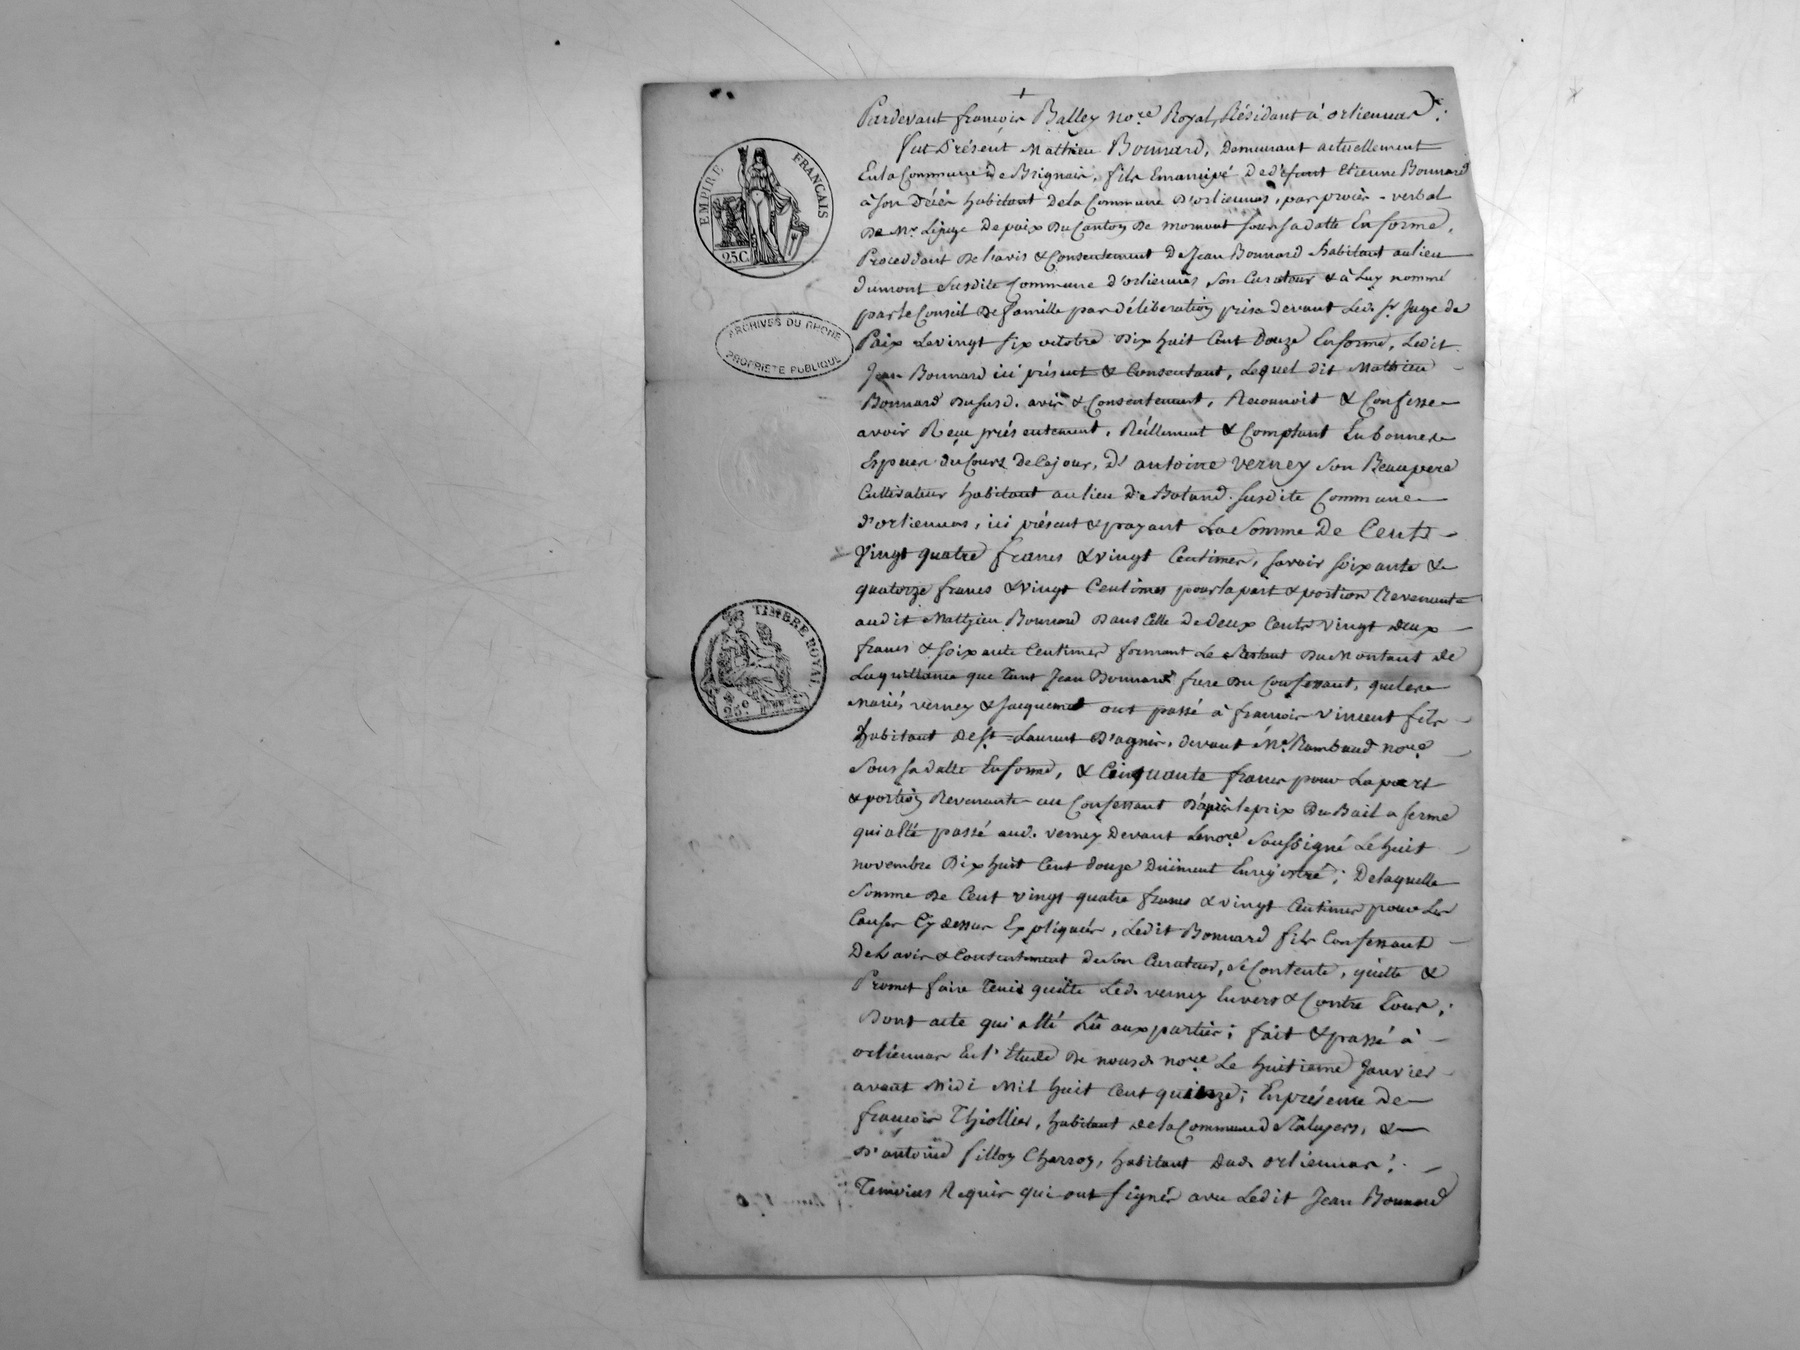 Pardevant françois Balley no.re Royal, Résidant à orlienas;
fut Présent Mathieu Bonnard, demeurant actuellement
En la Commune de Brignais, fils Emancipé de défunt Etienne Bonnard
à son décès habitant de la Commune d'orlienas, par procès-verbal
de Mr. Le juge de paix du Canton de mornant sous sa datte En forme,
Procédant de l'avis & Consentement de Jean Bonnard habitant au lieu
dumont susdite Commune d'orlienas, son Curateur & à luy nommé
par le Conseil de famille par délibération prise devant led. sr. Juge de
Paix Le vingt six octobre dix huit Cent douze En forme, Ledit
Jean Bonnard ici présent & Consentant, Lequel dit Mathieu
Bonnard du susd. avis & Consentement, Reconnoit & Confesse
avoir Reçu présentement, Réellement & Comptant En bonnes
Espèces du Cours de Ce jour, d' antoine Verney son Beaupere
Cultivateur habitant au lieu de Boland susdite Commune
d'orlienas, ici présent & payant La Somme De Cent
Vingt quatre francs & vingt Centimes, savoir soixante &
quatorze francs & vingt Centimes pour la part & portion Revenante
audit Mathieu Bonnard dans Celle de deux Cents vingt deux
francs & soixante Centimes formant Le Restant du Montant de
La quittance que tant Jean Bonnard frere du Confessant, que les
Mariés verney & Jacquemet ont passé à françois Vincent fils
habitant de st. Laurent d'agnis, devant Me. Rambaud no.re
Sous sa datte En forme, & Cinquante francs pour La part
& portion Revenante au Confessant d'après le prix du Bail a ferme
qui a été passé aud. verney devant Le no.re soussigné Le huit
novembre Dix huit Cent douze Duiment Enregistré; De laquelle
Somme de Cent vingt quatre francs & vingt Centimes pour Les
Causes Cy dessus Expliquées, Ledit Bonnard fils Confessant
De L'avis & Consentement de son Curateur, se Contente, quitte &
Promet faire tenir quitte Led. verney Envers & Contre Tous;
Dont acte qui a été Lu aux parties; fait & passé à
orlienas En l'Etude de nousd. no.re Le huitieme Janvier
avant Midi Mil huit Cent quinze; En présence de
françois Thiollier, habitant de la Commune de Taluyers, &
d'antoine fillon Charron, habitant dud. orlienas;
Temoins Requis qui ont signés avec Ledit Jean Bonnard
EMPIRE FRANÇAIS
25C.
ARCHIVES DU RHONE
PROPRIÉTÉ PUBLIQUE
TIMBRE ROYAL
25c.